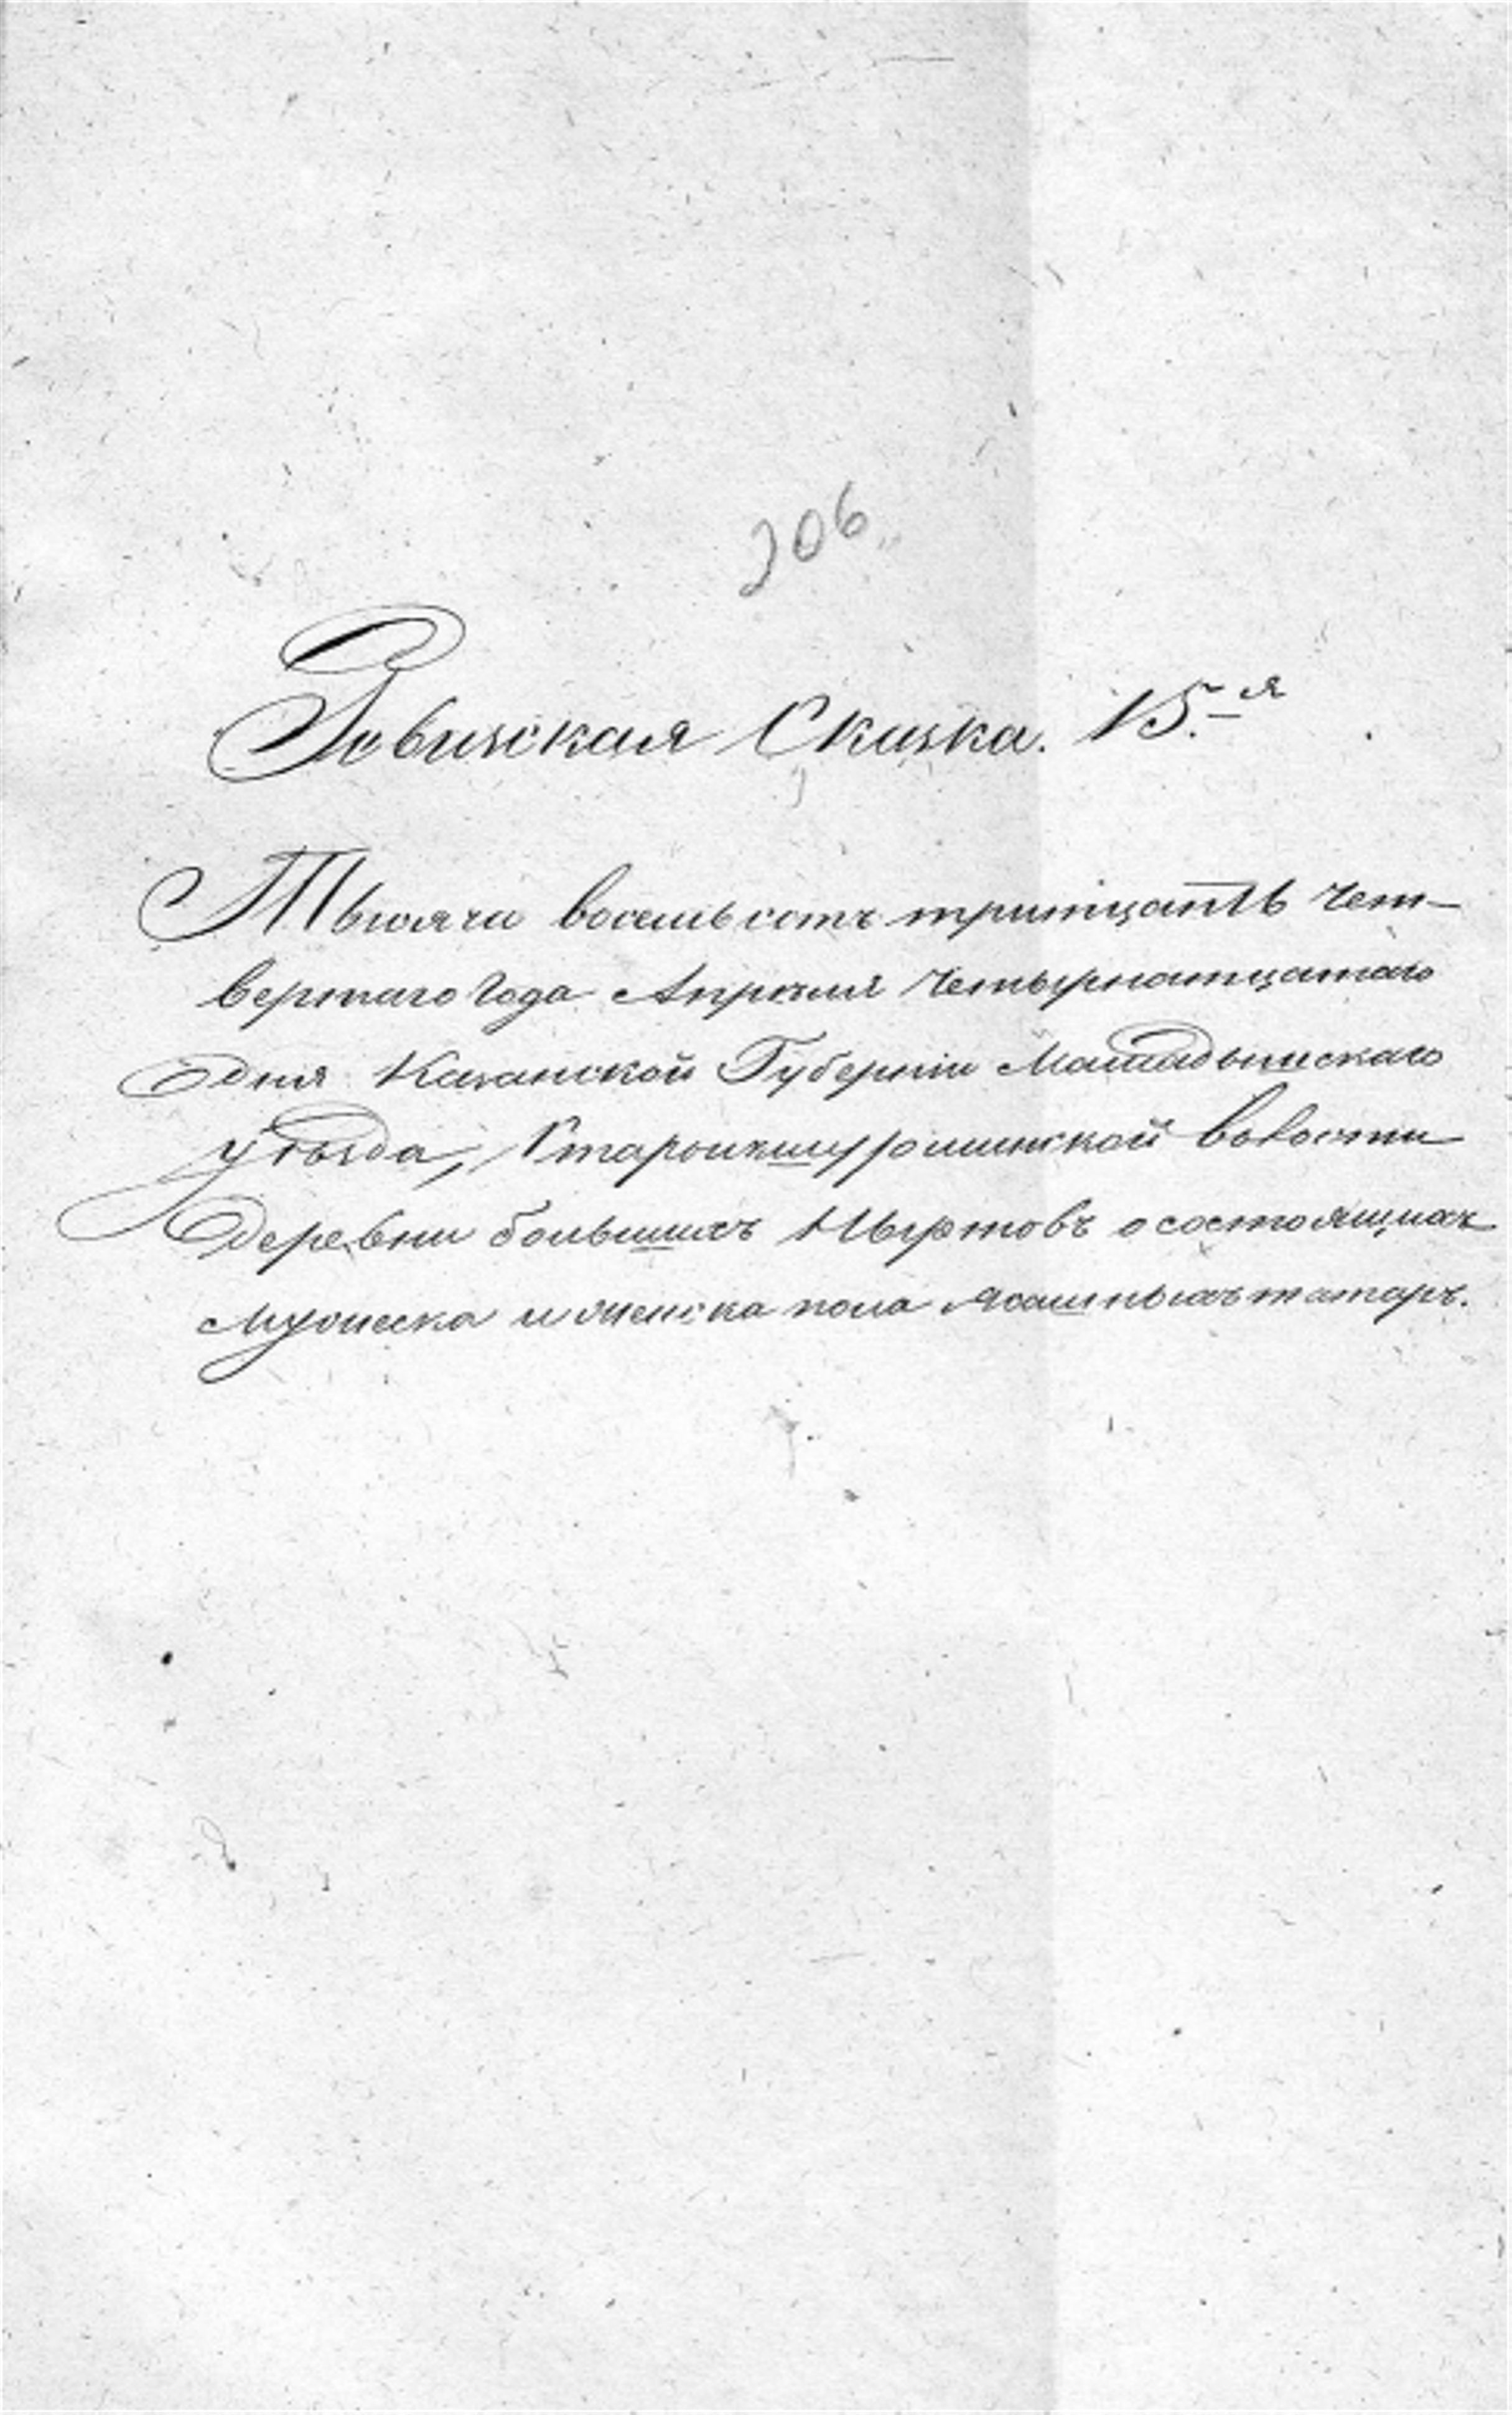 206
Ревизская Сказка. 15.я
Тысяча восемьсотъ тритцать чет-
вертаго года Апреля Четырнатцатаго
дня Казанской Губерніи Мамадышскаго
уѣзда, волости
деревни большихъ Ныртовъ о состоящихъ
мужеска и женска пола Ясашныхъ татаръ.